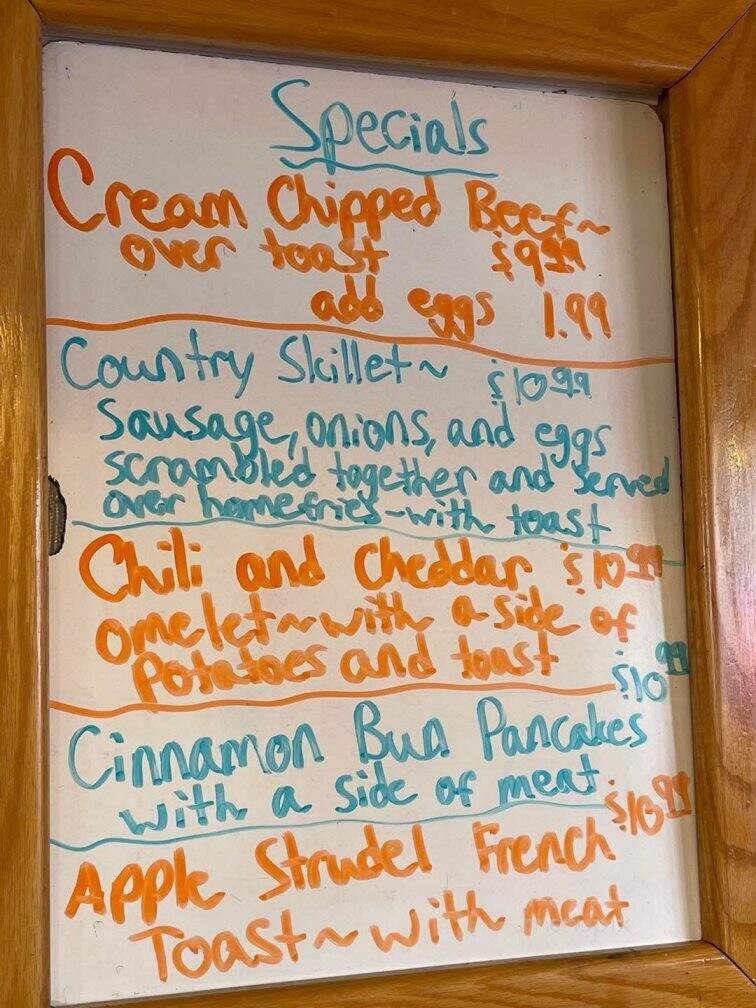 Specials
Cream Chipped Beef~
over toast $9.99
add eggs 1.99
Country Skillet~ $10.99
Sausage, onions, and eggs
scrambled together and served
over homefries~with toast
Chili and Cheddar $10.99
omelet~with a side of
potatoes and toast
$10.99
Cinnamon Bun Pancakes
with a side of meat
$10.99
Apple Strudel French
Toast~with meat